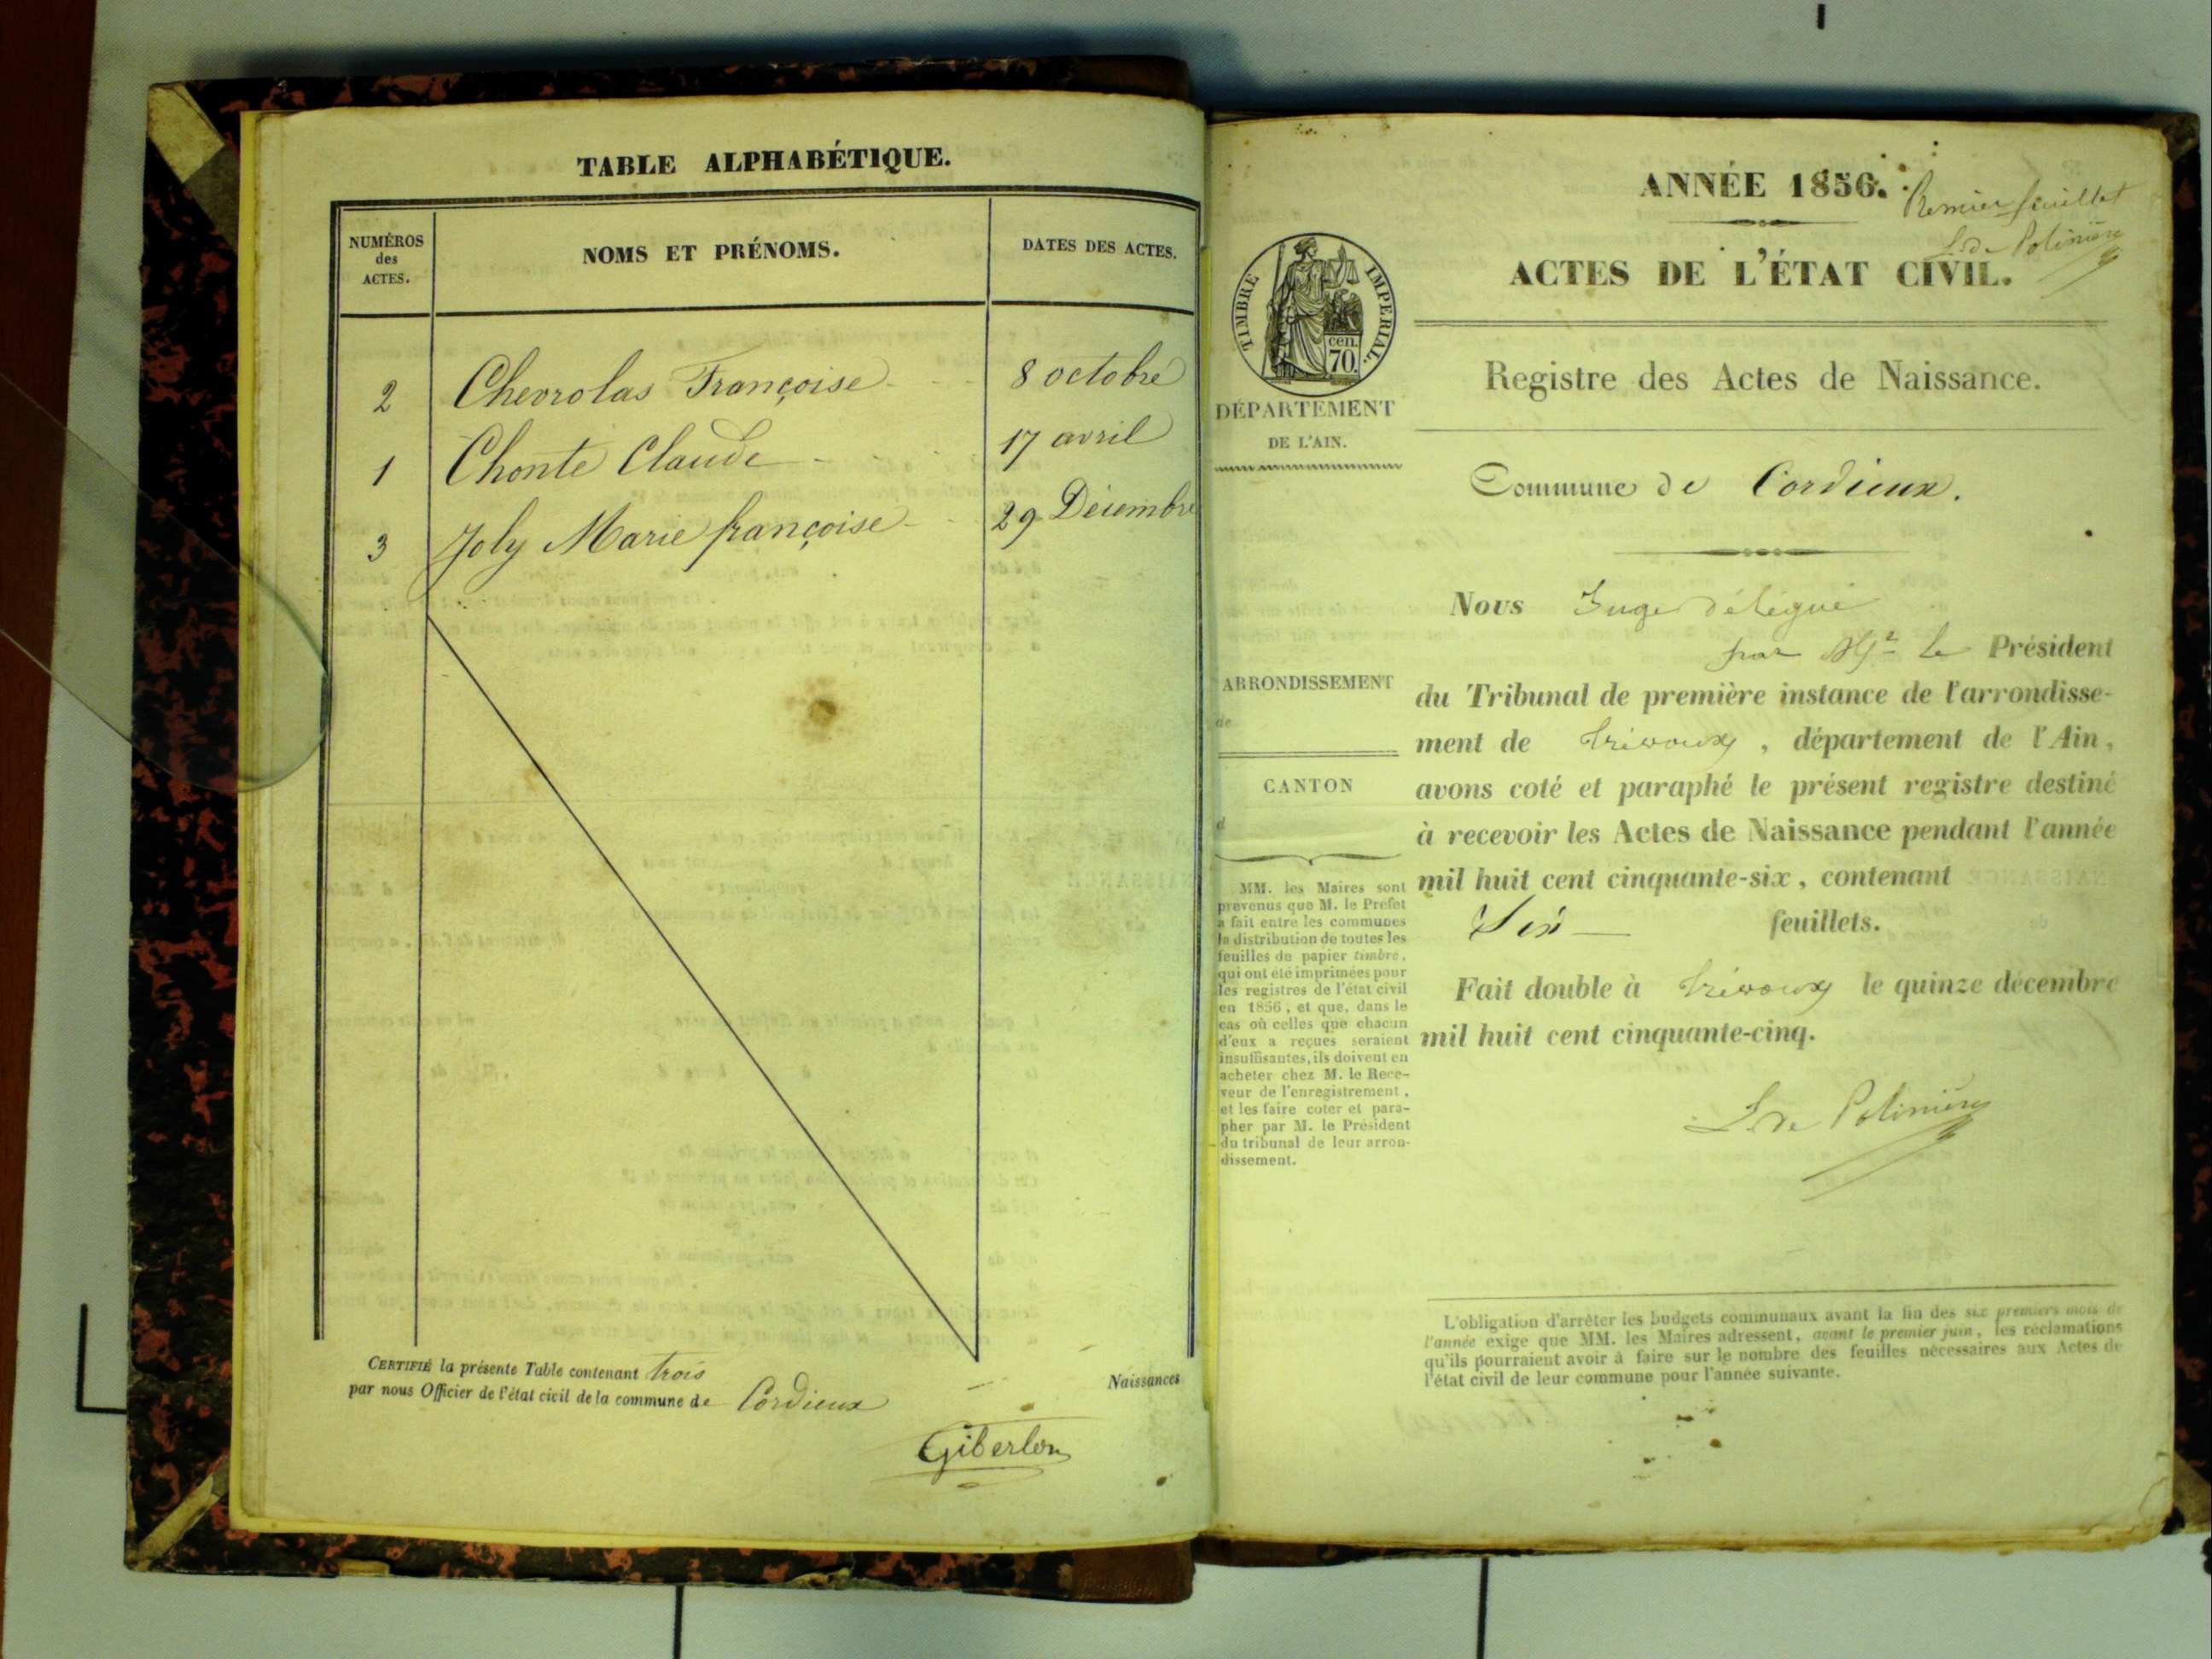 TABLE ALPHABÉTIQUE.
NUMÉROS
des
ACTES.
NOMS ET PRÉNOMS.
DATES DES ACTES.
2 Chevrolas Françoise 8 octobre
1 Chonte Claude 17 avril
3 Joly Marie françoise 29 Décembre
CERTIFIÉ la présente Table contenant trois Naissances
par nous Officier de l'état civil de la commune de Cordieux
Giberlon
ANNÉE 1856.
Premier feuillet
L. de Polinière
ACTES DE L'ÉTAT CIVIL.
TIMBRE IMPERIAL.
cen.
70.
DÉPARTEMENT
DE L'AIN.
Registre des Actes de Naissance.
Commune de Cordieux.
ARRONDISSEMENT
de
CANTON
d
MM. les Maires sont
prévenus que M. le Préfet
a fait entre les communes
la distribution de toutes les
feuilles de papier timbré,
qui ont été imprimées pour
les registres de l'état civil
en 1856, et que, dans le
cas où celles que chacun
d'eux a reçues seraient
insuffisantes, ils doivent en
acheter chez M. le Rece-
veur de l'enregistrement,
et les faire coter et para-
pher par M. le Président
du tribunal de leur arron-
dissement.
Nous Juge délégué
par Mr le Président
du Tribunal de première instance de l'arrondisse-
ment de Trévoux, département de l'Ain,
avons coté et paraphé le présent registre destiné
à recevoir les Actes de Naissance pendant l'année
mil huit cent cinquante-six, contenant
Six feuillets.
Fait double à Trévoux le quinze décembre
mil huit cent cinquante-cinq.
L. de Polinière
L'obligation d'arrêter les budgets communaux avant la fin des six premiers mois de
l'année exige que MM. les Maires adressent, avant le premier juin, les réclamations
qu'ils pourraient avoir à faire sur le nombre des feuilles nécessaires aux Actes de
l'état civil de leur commune pour l'année suivante.